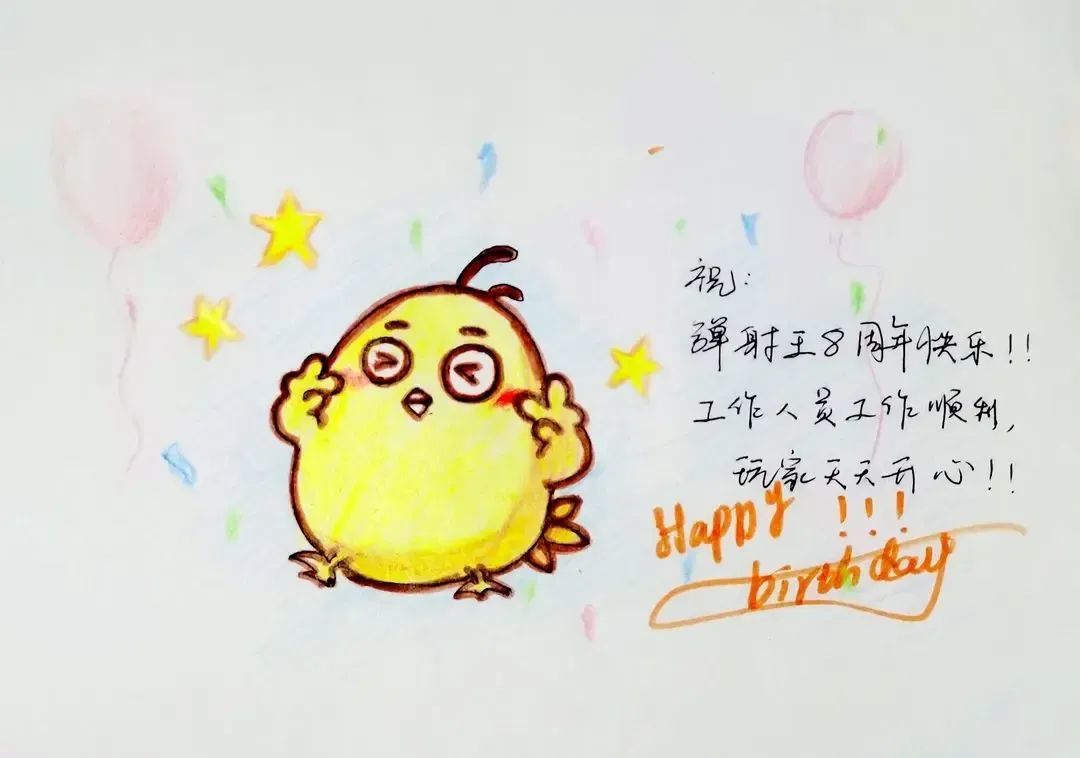 祝:
弹射王8周年快乐!!
工作人员工作顺利,
玩家天天开心!!
Happy !!!
birthday